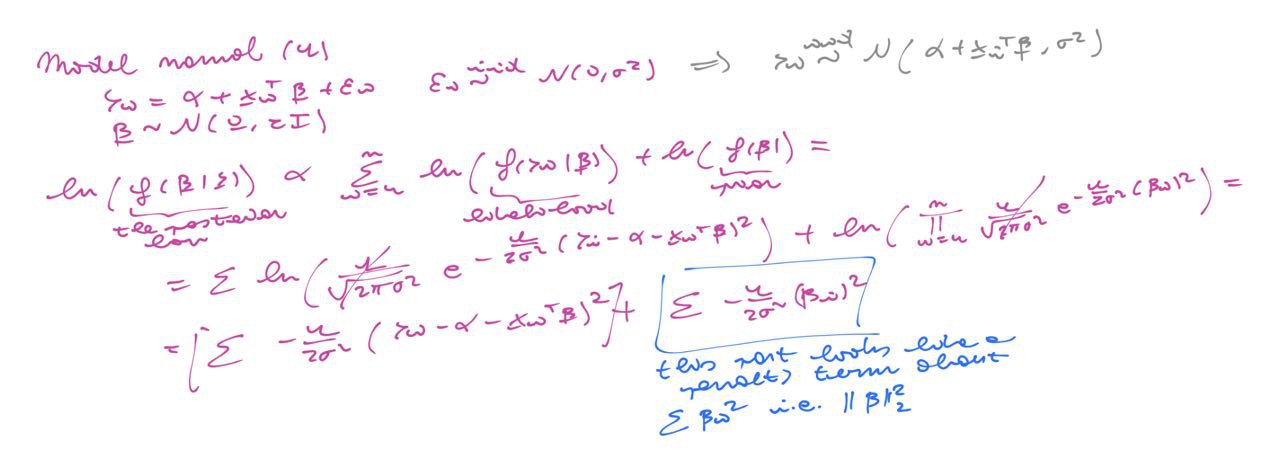 Model normal (1)
Yi = α + xiᵀ β + εi   εi iid~ N(0, σ²)   ⇒   Yi ind~ N(α + xiᵀ β, σ²)
β ~ N(0, τI)
ln(f(β|y)) ∝ Σ_{i=1}^{n} ln(f(yi|β)) + ln(f(β)) =
the posterior law   likelihood   prior
= Σ ln(1/√(2πσ²) e^{-1/(2σ²) (yi - α - xiᵀβ)²}) + ln(∏_{i=1}^{n} 1/√(2πσ²) e^{-1/(2σ²) (βi)²}) =
= [Σ -1/(2σ²) (yi - α - xiᵀβ)²] + [Σ -1/(2σ²) (βi)²]
this part looks like a
penalty term about
Σ βi² i.e. ||β||₂²